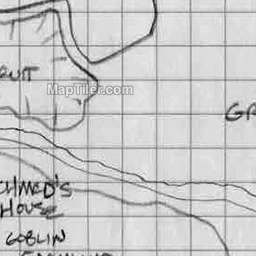 MapTiler.com
GR
CHMED'S
HOUSE
GOBLIN